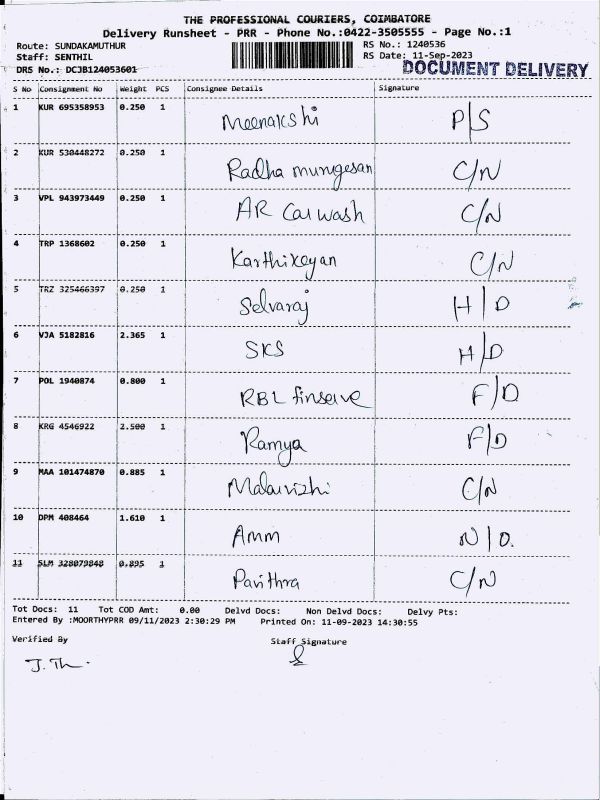 THE PROFESSIONAL COURIERS, COIMBATORE
Delivery Runsheet - PRR - Phone No.:0422-3505555 - Page No.:1
Route: SUNDAKAMUTHUR RS No.: 1240536
Staff: SENTHIL RS Date: 11-Sep-2023
DRS No.: DCJB124053601 DOCUMENT DELIVERY
S No Consignment No Weight PCS Consignee Details Signature
1 KUR 695358953 0.250 1 Meenakshi P/S
2 KUR 530448272 0.250 1 Radha murugesan C/N
3 VPL 943973449 0.250 1 AR Car wash C/N
4 TRP 1368602 0.250 1 Karthikeyan C/N
5 TRZ 325466397 0.250 1 Selvaraj H/D
6 VJA 5182816 2.365 1 SKS H/D
7 POL 1940874 0.800 1 RBL finserve F/D
8 KRG 4546922 2.500 1 Ramya F/D
9 MAA 101474870 0.885 1 Malarvizhi C/N
10 DPM 408464 1.610 1 Amm N/O.
11 SLM 328079848 0.895 1 Pavithra C/N
Tot Docs: 11 Tot COD Amt: 0.00 Delvd Docs: Non Delvd Docs: Delvy Pts:
Entered By :MOORTHYPRR 09/11/2023 2:30:29 PM Printed On: 11-09-2023 14:30:55
Verified By Staff Signature